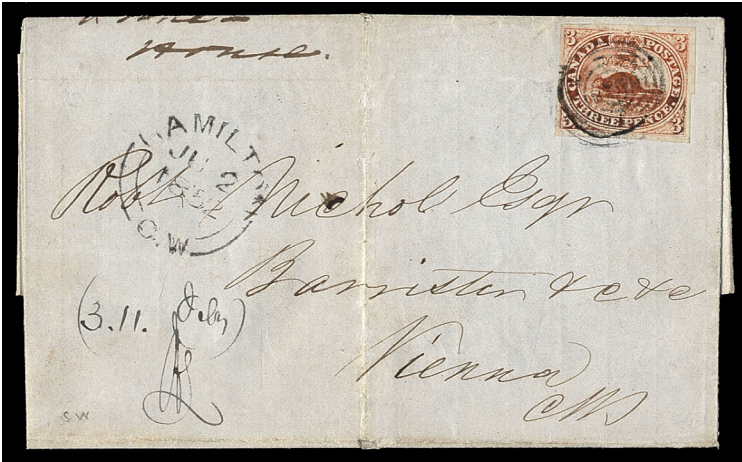 House.
3 CANADA POSTAGE 3
3 THREE PENCE 3
HAMILTON
JU 2
C.W
Robt Nichol Esqr
Barrister &c &c
Vienna
CW
(3.11. July)
S.W